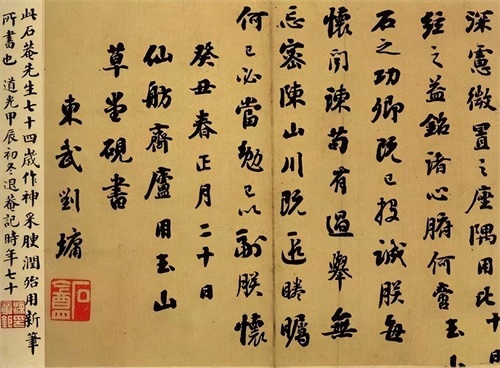 深慮微置之座隅用比
弦之益銘諸心腑何啻玉
石之功卿既已投誠朕每
懷聞諫苟有過舉無
忘密陳山川既遐睠矚
何已必當勉己以副朕懷
癸丑春正月二十日
仙舫齋廬用玉山
草堂硯書
東武劉墉
石盦
此石菴先生七十四歲作神采腴潤殆用新筆
所書也 道光甲辰初冬退菴記時年七十